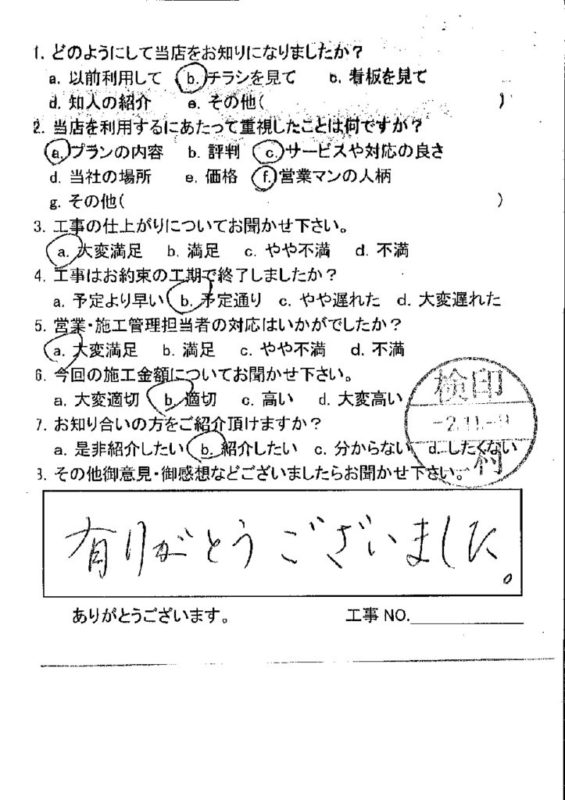 1. どのようにして当店をお知りになりましたか?
a. 以前利用して b. チラシを見て c. 看板を見て
d. 知人の紹介 e. その他( )
2. 当店を利用するにあたって重視したことは何ですか?
a. プランの内容 b. 評判 c. サービスや対応の良さ
d. 当社の場所 e. 価格 f. 営業マンの人柄
g. その他( )
3. 工事の仕上がりについてお聞かせ下さい。
a. 大変満足 b. 満足 c. やや不満 d. 不満
4. 工事はお約束の工期で終了しましたか?
a. 予定より早い b. 予定通り c. やや遅れた d. 大変遅れた
5. 営業・施工管理担当者の対応はいかがでしたか?
a. 大変満足 b. 満足 c. やや不満 d. 不満
6. 今回の施工金額についてお聞かせ下さい。
a. 大変適切 b. 適切 c. 高い d. 大変高い
検印
7. お知り合いの方をご紹介頂けますか?
a. 是非紹介したい b. 紹介したい c. 分からない d. したくない
8. その他御意見・御感想などございましたらお聞かせ下さい。
有りがとうございました。
ありがとうございます。 工事 NO.